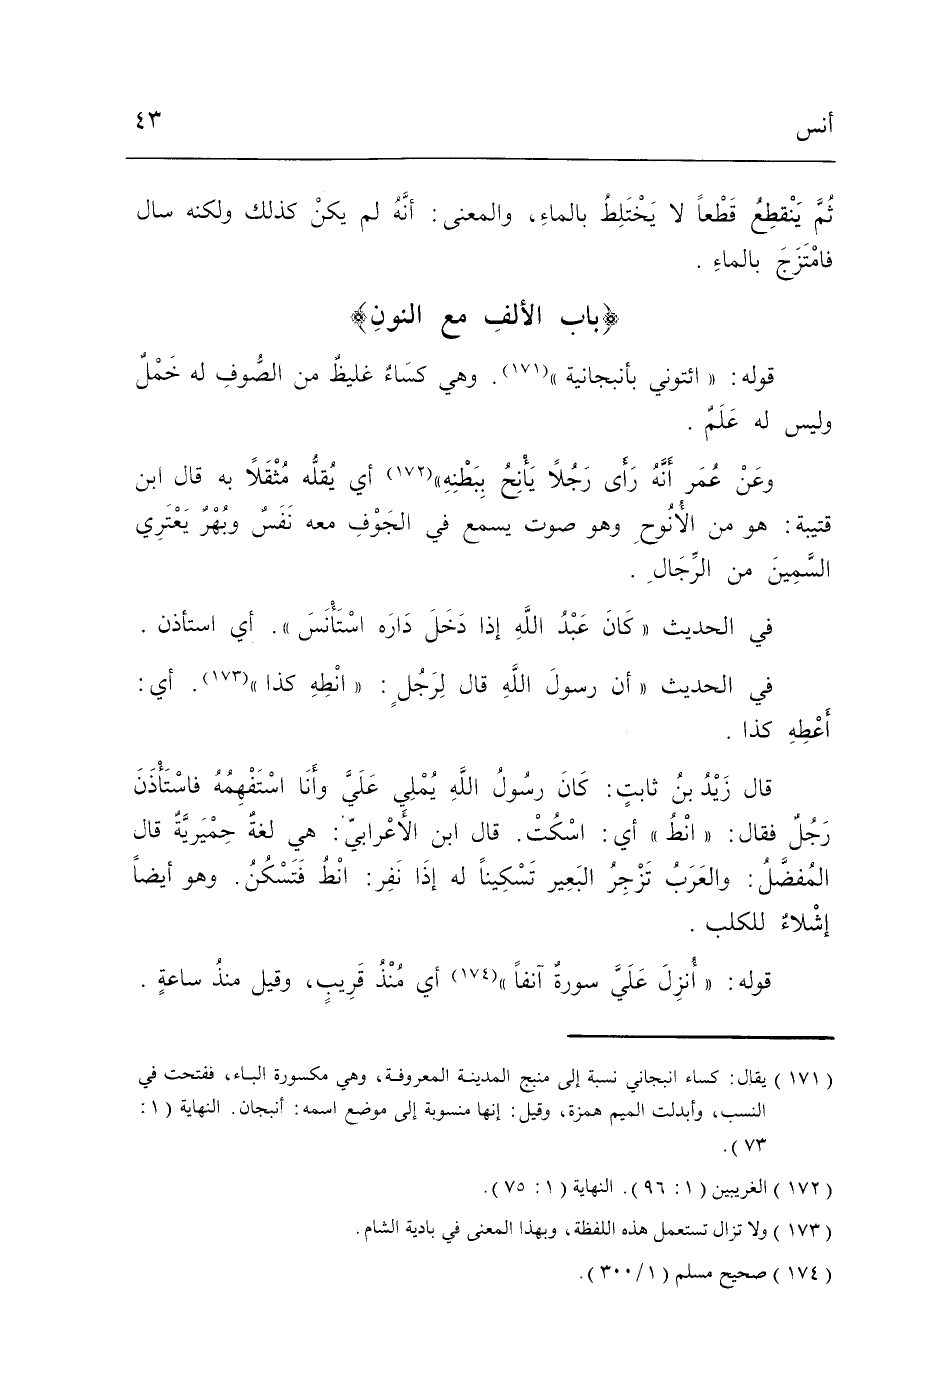 أنس
٤٣
ثُمَّ يَنْقطِعُ قَطْعاً لا يَخْتَلِطُ بالماءِ، والمعنى: أنَّهُ لم يكنْ كذلك ولكنه سال
فامْتَزَجَ بالماءِ .
﴿باب الألفِ مع النونِ﴾
قوله: « ائتوني بأنبجانية »(١٧١). وهي كسَاءٌ غليظٌ من الصُّوفِ له خَمْلٌ
وليس له عَلَمٌ .
وعَنْ عُمَر أَنَّهُ رَأَى رَجُلًا يَأْنِحُ بِبَطْنِهِ»(١٧٢) أي يُقلُّه مُثْقَلًا به قال ابن
قتيبة: هو من الأُنُوحِ وهو صوت يسمع في الجَوْفِ معه نَفَسٌ وبُهْرٌ يَعْتَرِي
السَّمِينَ من الرِّجَالِ .
في الحديث « كَانَ عَبْدُ اللَّهِ إذا دَخَلَ دَارَه اسْتَأْنَسَ ». أي استأذن .
في الحديث « أن رسولَ اللَّهِ قال لِرَجُلٍ: « انْطِهِ كذا »(١٧٣). أي:
أَعْطِهِ كذا .
قال زَيْدُ بنُ ثابتٍ: كَانَ رسُولُ اللَّهِ يُمْلِي عَلَيَّ وأَنَا اسْتَفْهِمُهُ فاسْتَأْذَنَ
رَجُلٌ فقال: « انْطُ » أي: اسْكُتْ. قال ابن الأَعْرابيّ: هي لغةٌ حِمْيَرِيَّةٌ قال
المُفضَّلُ: والعَرَبُ تَزْجِرُ البَعِير تَسْكِيناً له إذَا نَفِر: انْطُ فَتَسْكُنُ. وهو أيضاً
إشْلاءٌ للكلب .
قوله: « أُنزِلَ عَلَيَّ سورةٌ آنفاً »(١٧٤) أي مُنْذُ قَرِيبٍ، وقيل منذُ ساعةٍ .
( ١٧١ ) يقال: كساء انبجاني نسبة إلى منبج المدينة المعروفة، وهي مكسورة الباء، ففتحت في
النسب، وأبدلت الميم همزة، وقيل: إنها منسوبة إلى موضع اسمه: أنبجان. النهاية ( ١:
٧٣ ).
( ١٧٢ ) الغريبين ( ١: ٩٦ ). النهاية ( ١: ٧٥ ).
( ١٧٣ ) ولا تزال تستعمل هذه اللفظة، وبهذا المعنى في بادية الشام.
( ١٧٤ ) صحيح مسلم ( ١/ ٣٠٠ ).